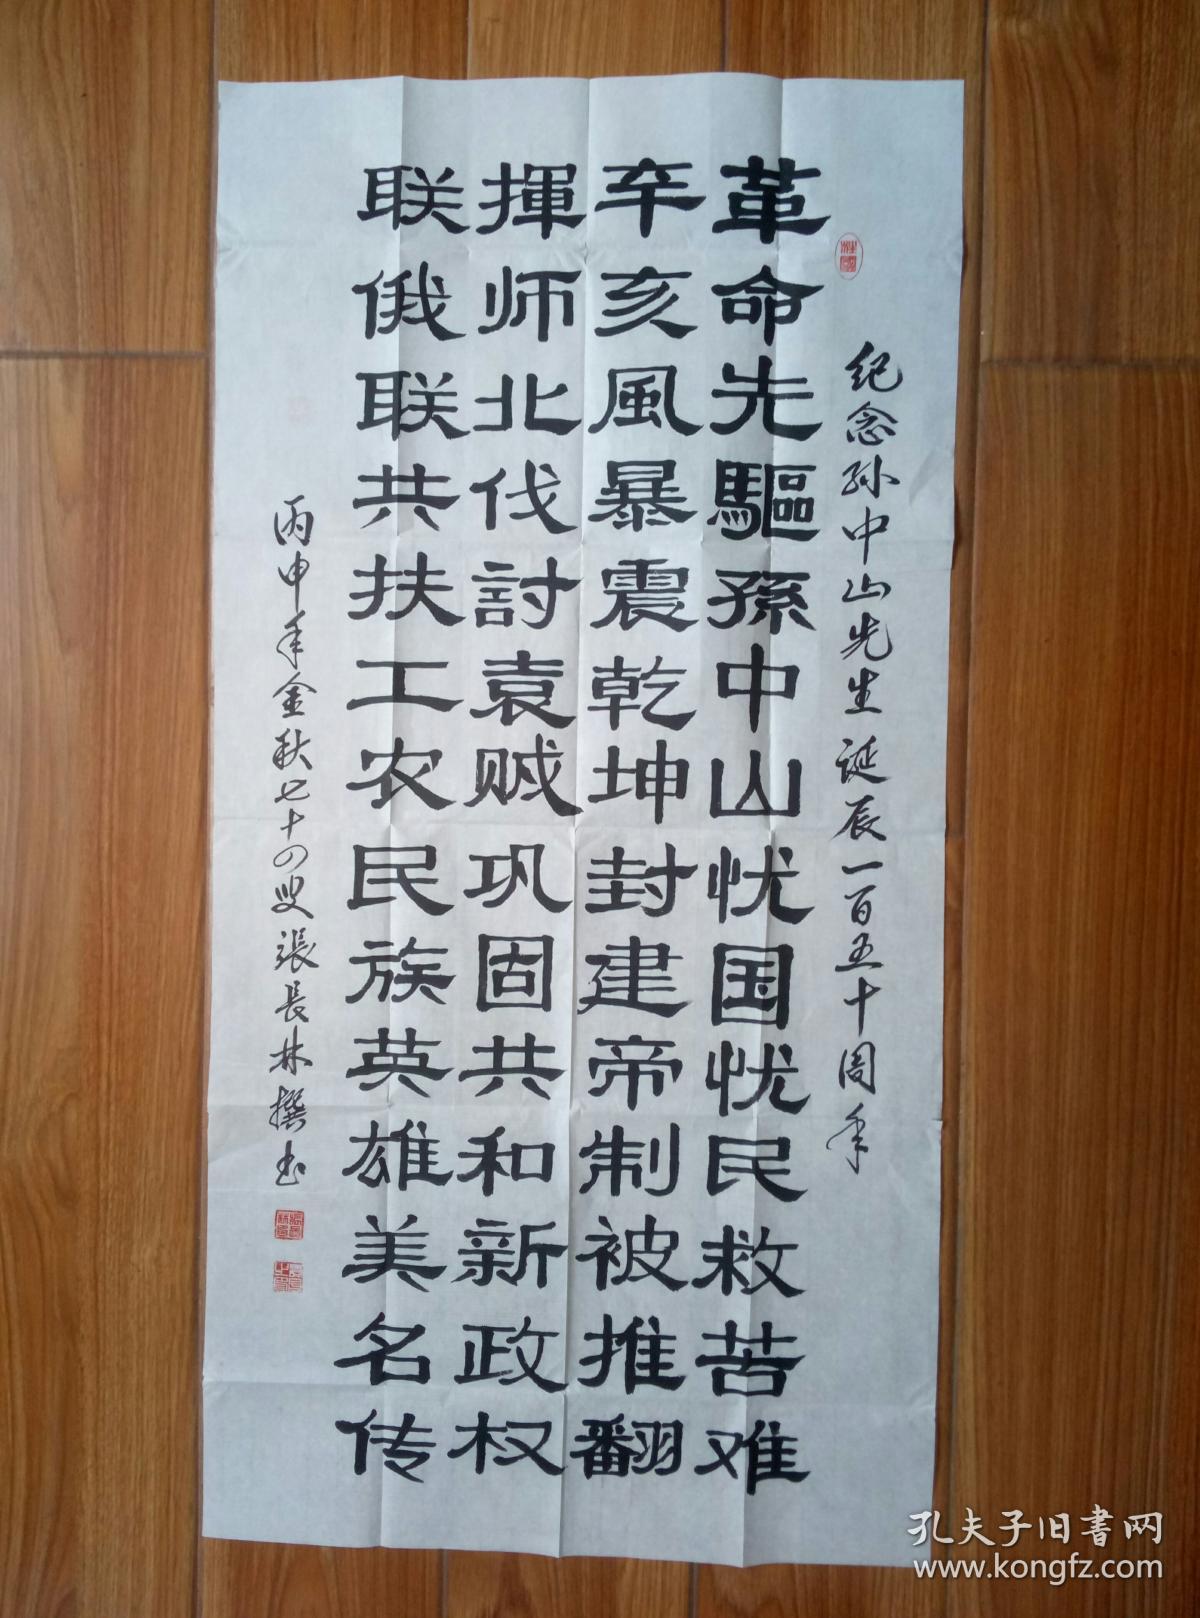 纪念孙中山先生诞辰一百五十周年
革命先驅孫中山忧国忧民救苦难
辛亥風暴震乾坤封建帝制被推翻
揮师北伐討袁贼巩固共和新政权
联俄联共扶工农民族英雄美名传
丙申年金秋七十四叟張長林撰书
孔夫子旧書网
www.kongfz.com